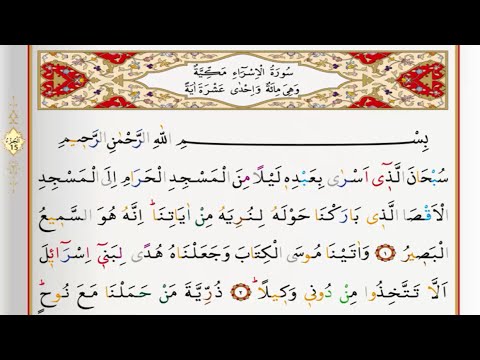 سُورَةُ الْاِسْرَٓاءِ مَكِّيَّةٌ
وَهِيَ مِائَةٌ وَاِحْدٰى عَشْرَةَ اٰيَةً
بِسْــــــــمِ اللّٰهِ الرَّحْمٰنِ الرَّح۪يمِ
سُبْحَانَ الَّذ۪ٓي اَسْرٰى بِعَبْدِه۪ لَيْلًا مِنَ الْمَسْجِدِ الْحَرَامِ اِلَى الْمَسْجِدِ
الْاَقْصَا الَّذ۪ي بَارَكْنَا حَوْلَهُ لِنُرِيَهُ مِنْ اٰيَاتِنَاۜ اِنَّهُ هُوَ السَّم۪يعُ
الْبَص۪يرُ ﴿١﴾ وَاٰتَيْنَا مُوسَى الْكِتَابَ وَجَعَلْنَاهُ هُدًى لِبَن۪ٓي اِسْرَٓائ۪لَ
اَلَّا تَتَّخِذُوا مِنْ دُون۪ي وَك۪يلًاۜ ﴿٢﴾ ذُرِّيَّةَ مَنْ حَمَلْنَا مَعَ نُوحٍۜ
15